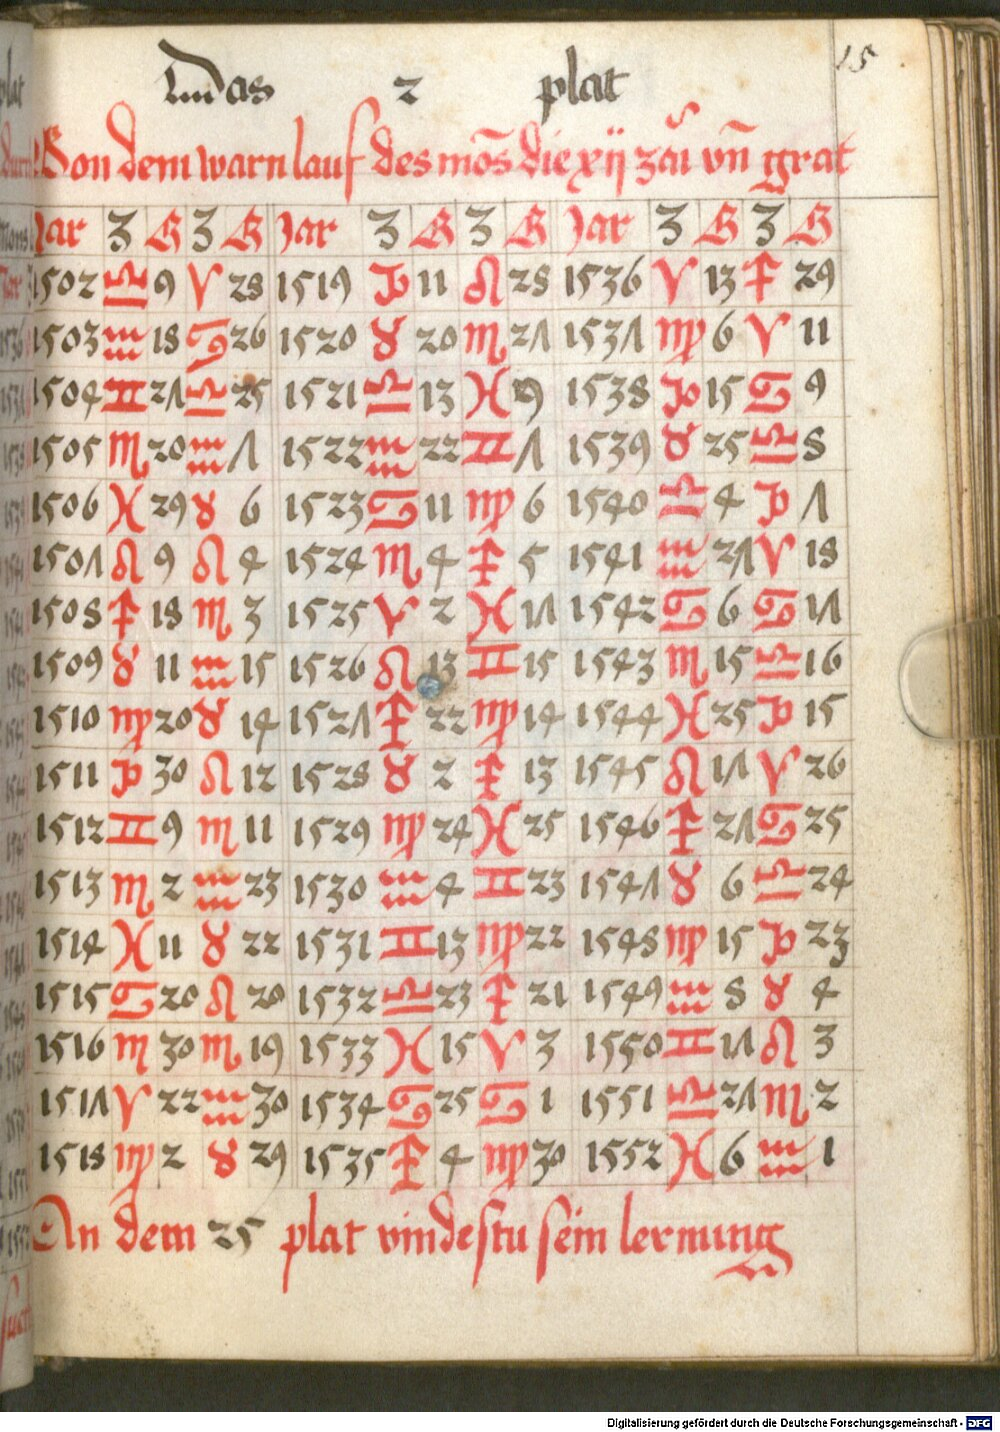 das 2 plat
15
Von dem warn lauf des mōs die xij zāi vn̄ grat
Jar 3 G 3 G Jar 3 G 3 G Jar 3 G 3 G
1502 ♎ 9 ♈ 28 1519 ♑ 11 ♌ 28 1536 ♈ 13 ♐ 29
1503 ♒ 18 ♋ 26 1520 ♉ 20 ♏ 27 1537 ♍ 6 ♈ 11
1504 ♊ 27 ♎ 25 1521 ♎ 13 ♓ 9 1538 ♑ 15 ♋ 9
1505 ♏ 20 ♒ 7 1522 ♒ 22 ♊ 7 1539 ♉ 25 ♎ 8
1506 ♓ 29 ♉ 6 1523 ♋ 11 ♍ 6 1540 ♎ 4 ♑ 7
1507 ♌ 9 ♌ 4 1524 ♏ 4 ♐ 5 1541 ♒ 27 ♈ 18
1508 ♐ 18 ♏ 3 1525 ♈ 2 ♓ 17 1542 ♋ 6 ♋ 17
1509 ♉ 11 ♒ 15 1526 ♌ 13 ♊ 15 1543 ♏ 15 ♎ 16
1510 ♍ 20 ♉ 14 1527 ♐ 22 ♍ 14 1544 ♓ 25 ♑ 15
1511 ♑ 30 ♌ 12 1528 ♉ 2 ♐ 13 1545 ♌ 17 ♈ 26
1512 ♊ 9 ♏ 11 1529 ♍ 24 ♓ 25 1546 ♐ 27 ♋ 25
1513 ♏ 2 ♒ 23 1530 ♒ 4 ♊ 23 1547 ♉ 6 ♎ 24
1514 ♓ 11 ♉ 22 1531 ♊ 13 ♍ 22 1548 ♍ 15 ♑ 23
1515 ♋ 20 ♌ 20 1532 ♎ 23 ♐ 21 1549 ♒ 8 ♉ 4
1516 ♏ 30 ♏ 19 1533 ♓ 15 ♈ 3 1550 ♊ 17 ♌ 3
1517 ♈ 22 ♒ 30 1534 ♋ 25 ♋ 1 1551 ♎ 27 ♏ 2
1518 ♍ 2 ♉ 29 1535 ♐ 4 ♍ 30 1552 ♓ 6 ♒ 1
An dem 25 plat vindestu sein lernung
Digitalisierung gefördert durch die Deutsche Forschungsgemeinschaft - DFG